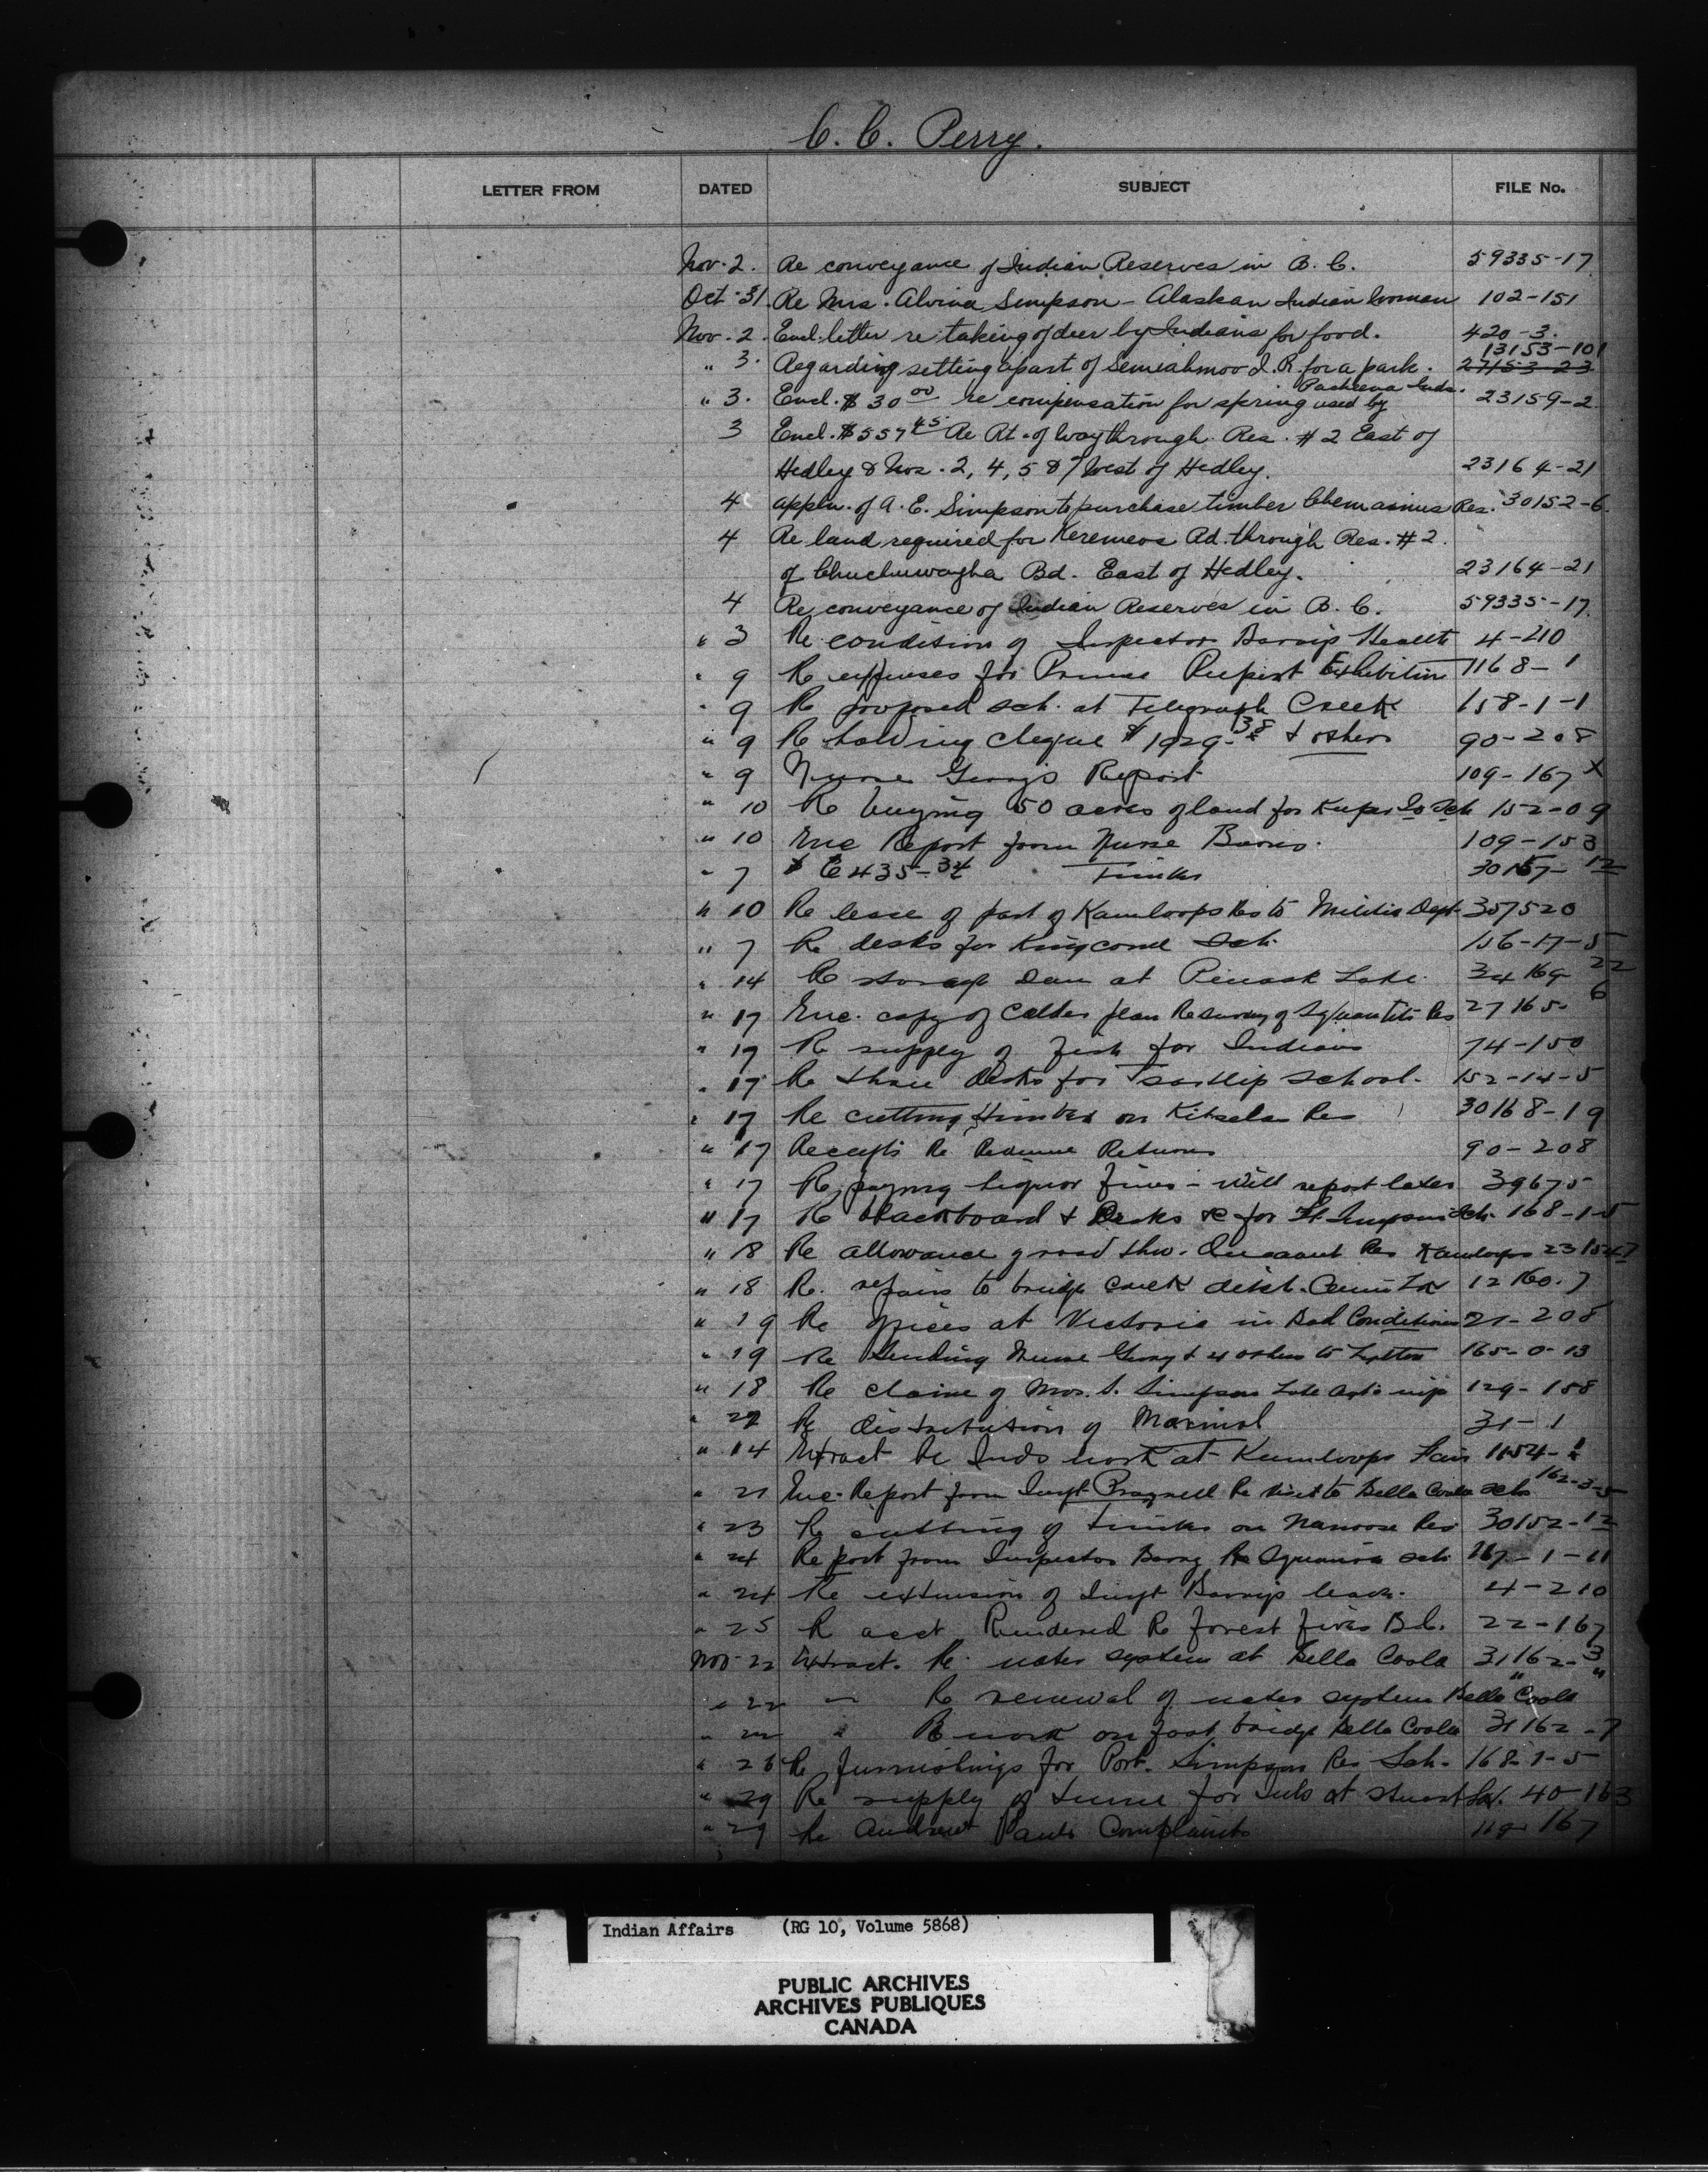 C. C. Perry.
LETTER FROM DATED SUBJECT FILE No.
Nov. 2. Re conveyance of Indian Reserves in B. C. 59335-17
Oct. 31. Re Mrs. Alvina Simpson - Alaskan Indian Woman 102-151
Nov. 2. Encl. letter re taking of deer by Indians for food. 420-3.
13153-101
" 3. Regarding setting apart of Semiahmoo I. R. for a park. 27153-23
Pacheena Inds.
" 3. Encl. $30 00 re compensation for spring used by 23159-2
3 Encl. $557 45 Re Rt. of Way through Res. #2 East of
Hedley & Nos. 2, 4, 5 & 7 West of Hedley. 23164-21
4 Appln. of A. E. Simpson to purchase timber Chemainus Res. 30152-6.
4 Re land required for Keremeos Rd. through Res. #2.
of Chuchuwayha Bd. East of Hedley. 23164-21
4 Re conveyance of Indian Reserves in B. C. 59335-17.
" 3 Re condition of Inspector Barrys Health 4-210
" 9 Re expenses for Prince Rupert Exhibition 1168-1
" 9 Re proposed sch. at Telegraph Creek 158-1-1
" 9 Re holding cheque $1929.38 & others 90-208
" 9 Nurse Report 109-167 x
" 10 Re buying 50 acres of land for Kuper Is Sch 152-09
" 10 Enc Report from Nurse 109-153
" 7 $ 435-34 Timber 30167-12
" 10 Re lease of part of Kamloops Res to Militia Dept. 357520
" 7 Re desks for Kingcome Sch. 156-17-5
" 14 Re storage Dam at Pennask Lake 34169-22
" 17 Enc. copy of plan Re survey of Res 27165-6
" 17 Re supply of fish for Indians 74-150
" 17 Re desks for Tsartlip School. 152-14-5
" 17 Re cutting timber on Kitselas Res 30168-19
" 17 Receipts Re Revenue Returns 90-208
" 17 Re paying liquor fines - will report later 39675
" 17 Re blackboard & Desks &c for Pt. Simpson Sch. 168-1-5
" 18 Re allowance of road thro. Res Kamloops
" 18 Re. repairs to bridge creek ditch. 12160-7
" 19 Re offices at Victoria in Bad Condition 21-208
" 19 Re sending Nurse & 4 others to Lytton 165-0-13
" 18 Re claim of Mrs. S. Simpson 129-158
" 22 Re distribution of 31-1
" 14 Extract Re Inds work at Kamloops Fair 1154-1
" 21 Enc. Report from Inspt Pragnell Re visit to Bella Coola sch 162-3-5
" 23 Re cutting of timber on Nanoose Res 30152-12
" 24 Report from Inspector Barry Re Squamish sch 167-1-11
" 24 Re extension of Inspt Barrys leave. 4-210
" 25 Re acct Rendered Re forest fires B.C. 22-167
Nov. 22 Extract. Re. water system at Bella Coola 31162-3
" 22 " Re renewal of water system Bella Coola " "
" 22 " Re work on foot bridge Bella Coola 31162-7
" 28 Re furnishings for Port. Simpson Res Sch. 168-1-5
" 29 Re supply of twine for Inds at Stuart Lk. 40-163
" 29 Re Andrew Pauls Complaints 167
Indian Affairs (RG 10, Volume 5868)
PUBLIC ARCHIVES
ARCHIVES PUBLIQUES
CANADA